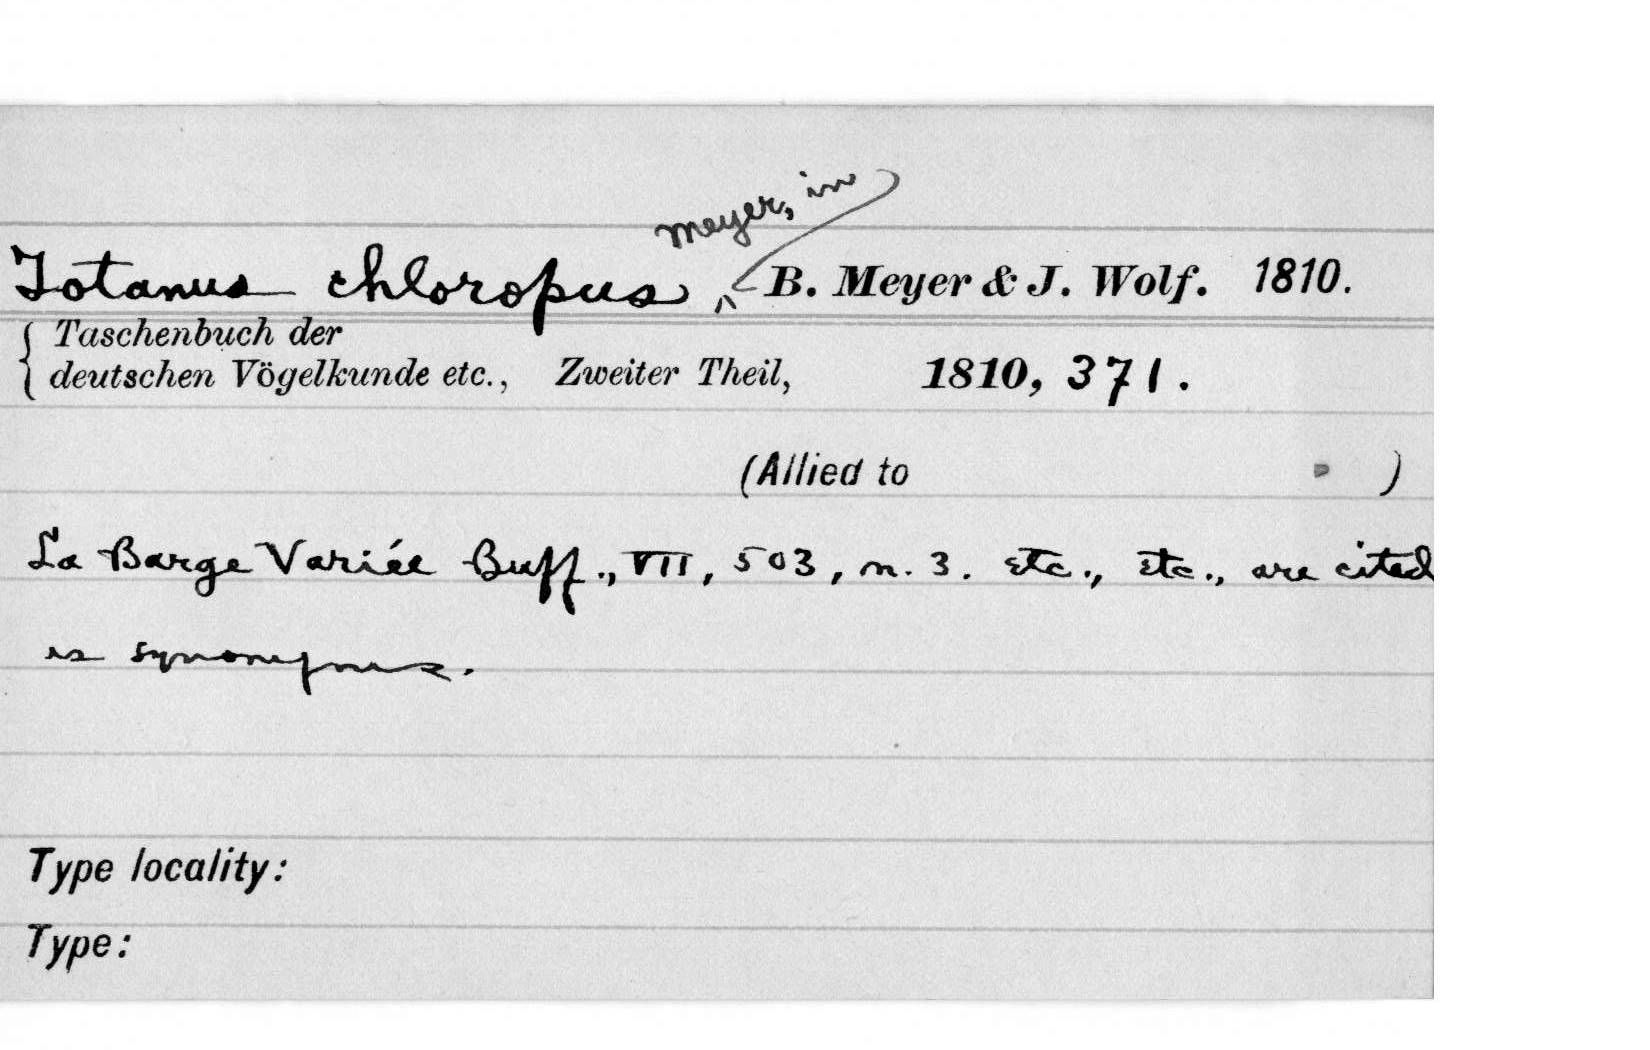 Meyer, in
Totanus chloropus, B. Meyer & J. Wolf. 1810.
Taschenbuch der
deutschen Vögelkunde etc., Zweiter Theil, 1810, 371.
(Allied to )
La Barge Variée Buff., VII, 503, n. 3. etc., etc., are cited
as synonyms.
Type locality:
Type: